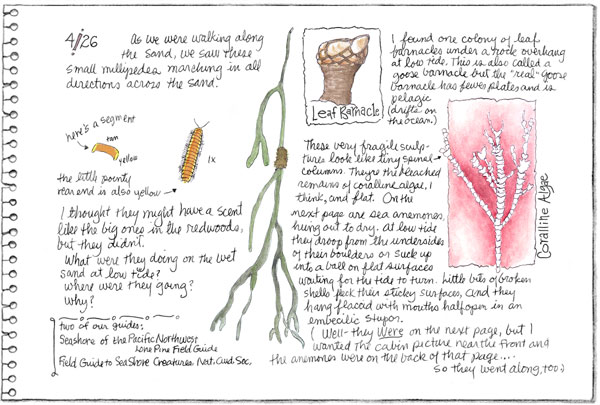 4/26
As we were walking along
the sand, we saw these
small millipedes marching in all
directions across the sand.
here's a segment
tan
yellow
1x
the little pointy
rear end is also yellow
I thought they might have a scent
like the big ones in the redwoods,
but they didn't.
What were they doing on the wet
sand at low tide?
where were they going?
Why?
two of our guides:
Seashore of the Pacific Northwest
Lone Pine Field Guide
Field Guide to SeaShore Creatures Nat. Aud. Soc.
Leaf Barnacle
I found one colony of leaf
barnacles under a rock overhang
at low tide. This is also called a
goose barnacle but the "real" goose
barnacle has fewer plates and is
pelagic
(drifts on
the ocean.)
These very fragile sculp-
tures look like tiny spinal
columns. They're the bleached
remains of coralline algae, I
think, and flat. On the
next page are sea anemones,
hung out to dry. At low tide
they droop from the undersides
of their boulders or suck up
into a ball on flat surfaces
waiting for the tide to turn. Little bits of broken
shells fleck their sticky surfaces, and they
hang flaccid with mouths half open in an
embecilic stupor.
(Well - they were on the next page, but I
wanted the cabin picture near the front and
the anemones were on the back of that page....
so they went along, too.)
Coralline Algae